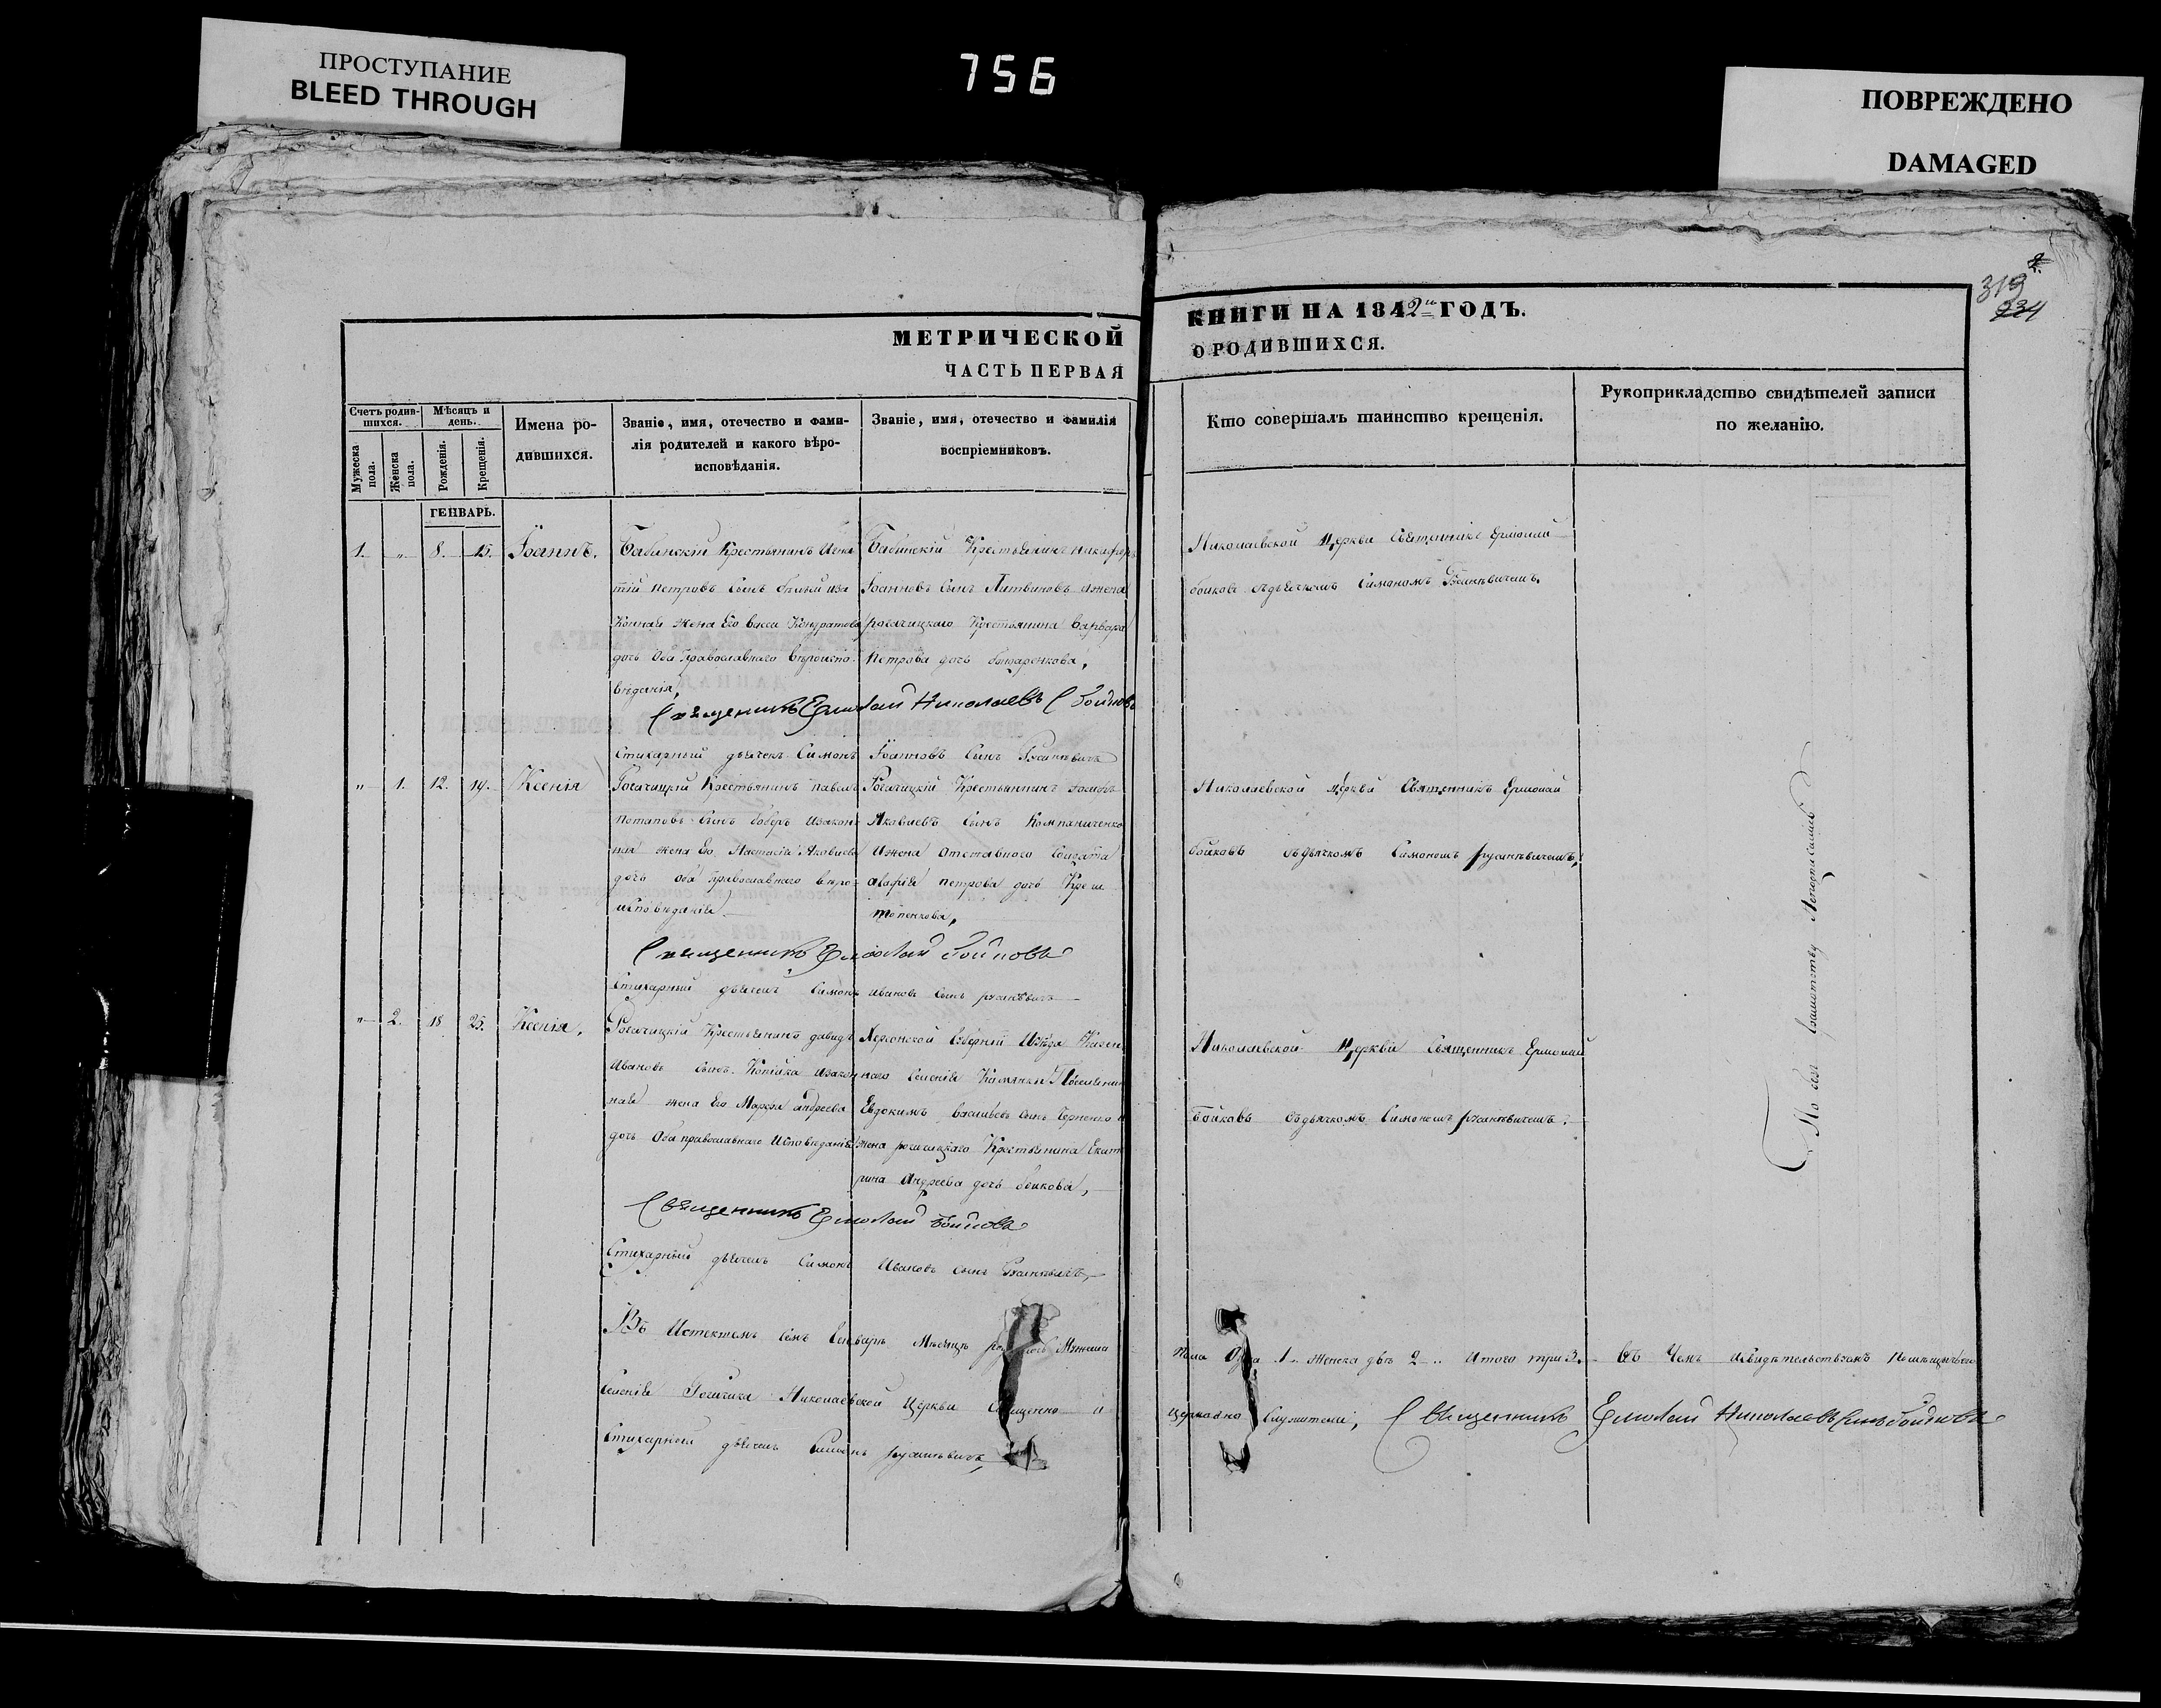 ПРОСТУПАНИЕ
BLEED THROUGH
756
ПОВРЕЖДЕНО
DAMAGED
2.
319
234
МЕТРИЧЕСКОЙ
ЧАСТЬ ПЕРВАЯ
КНИГИ НА 1842 ГОДЪ.
О РОДИВШИХСЯ.
Счетъ родив-
шихся.
Мѣсяцъ и
день.
Мужеска
пола.
Женска
пола.
Рожденія.
Крещенія.
Имена ро-
дившихся.
Званіе, имя, отечество и фами-
лія родителей и какого вѣро-
исповѣданія.
Званіе, имя, отечество и фамилія
воспріемниковъ.
Кто совершалъ таинство крещенія.
Рукоприкладство свидѣтелей записи
по желанію.
ГЕНВАРЬ.
1. „ 8. 15. Іоаннъ.
Бабинскій Крестьянинъ
тій Петровъ Сынъ
жена Его Васса Кондратова
дочь Оба Православнаго вѣроиспо-
вѣданія,
Бабинскій Крестьянинъ Никифоръ
Іоанновъ Сынъ Литвиновъ
рогачицкаго Крестьянина Варвара
Петрова дочь Бондаренкова,
Николаевской Церкви Священникъ Ермолай
Бойковъ съ дьячкомъ Симономъ
Священникъ Ермолай Николаевъ С Бойковъ
Стихарный дьячекъ Симонъ Іоанновъ Сынъ
„ 1. 12. 14. Ксенія
Рогачицкій Крестьянинъ Павелъ
Потаповъ Сынъ Боберъ Изакон-
ная жена Его Настасія Яковлева
дочь Оба Православнаго вѣро-
исповѣданія
Рогачицкій Крестьянинъ
Яковлевъ Сынъ Компаниченко
Ижена Отставного Солдата
Агафія Петрова дочь
Николаевской Церкви Священникъ Ермолай
Бойковъ съ дьячкомъ Симономъ
Священникъ Ермолай Бойковъ
Стихарный дьячекъ Симонъ Ивановъ Сынъ
„ 2. 18 25. Ксенія,
Рогачицкій Крестьянинъ Давидъ
Ивановъ Сынъ Копійка Изакон-
ная жена Его Марфа Андреева
дочь Оба православнаго Исповѣданія
Херсонской Губерніи Уѣзда Казен-
наго Селенія Камянки
Евдокимъ Васильевъ Сынъ Черненко и
жена рогачицкаго Крестьянина Екате
рина Андреева дочь Бойкова,
Николаевской Церкви Священникъ Ермолай
Бойковъ съ дьячкомъ Симономъ
Священникъ Ермолай Бойковъ
Стихарный дьячекъ Симонъ Ивановъ Сынъ
По без грамотству Неподписались
Въ Истекшемъ Семъ Генварѣ Мѣсяцѣ Мужеска
пола 1. женска двѣ 2 .. Итого три 3. Въ Чемъ
Селенія Рогачика Николаевской Церкви Священно и
церковно Служители, Священникъ Ермолай Николаевъ Сынъ Бойковъ
Стихарный дьячекъ Симонъ